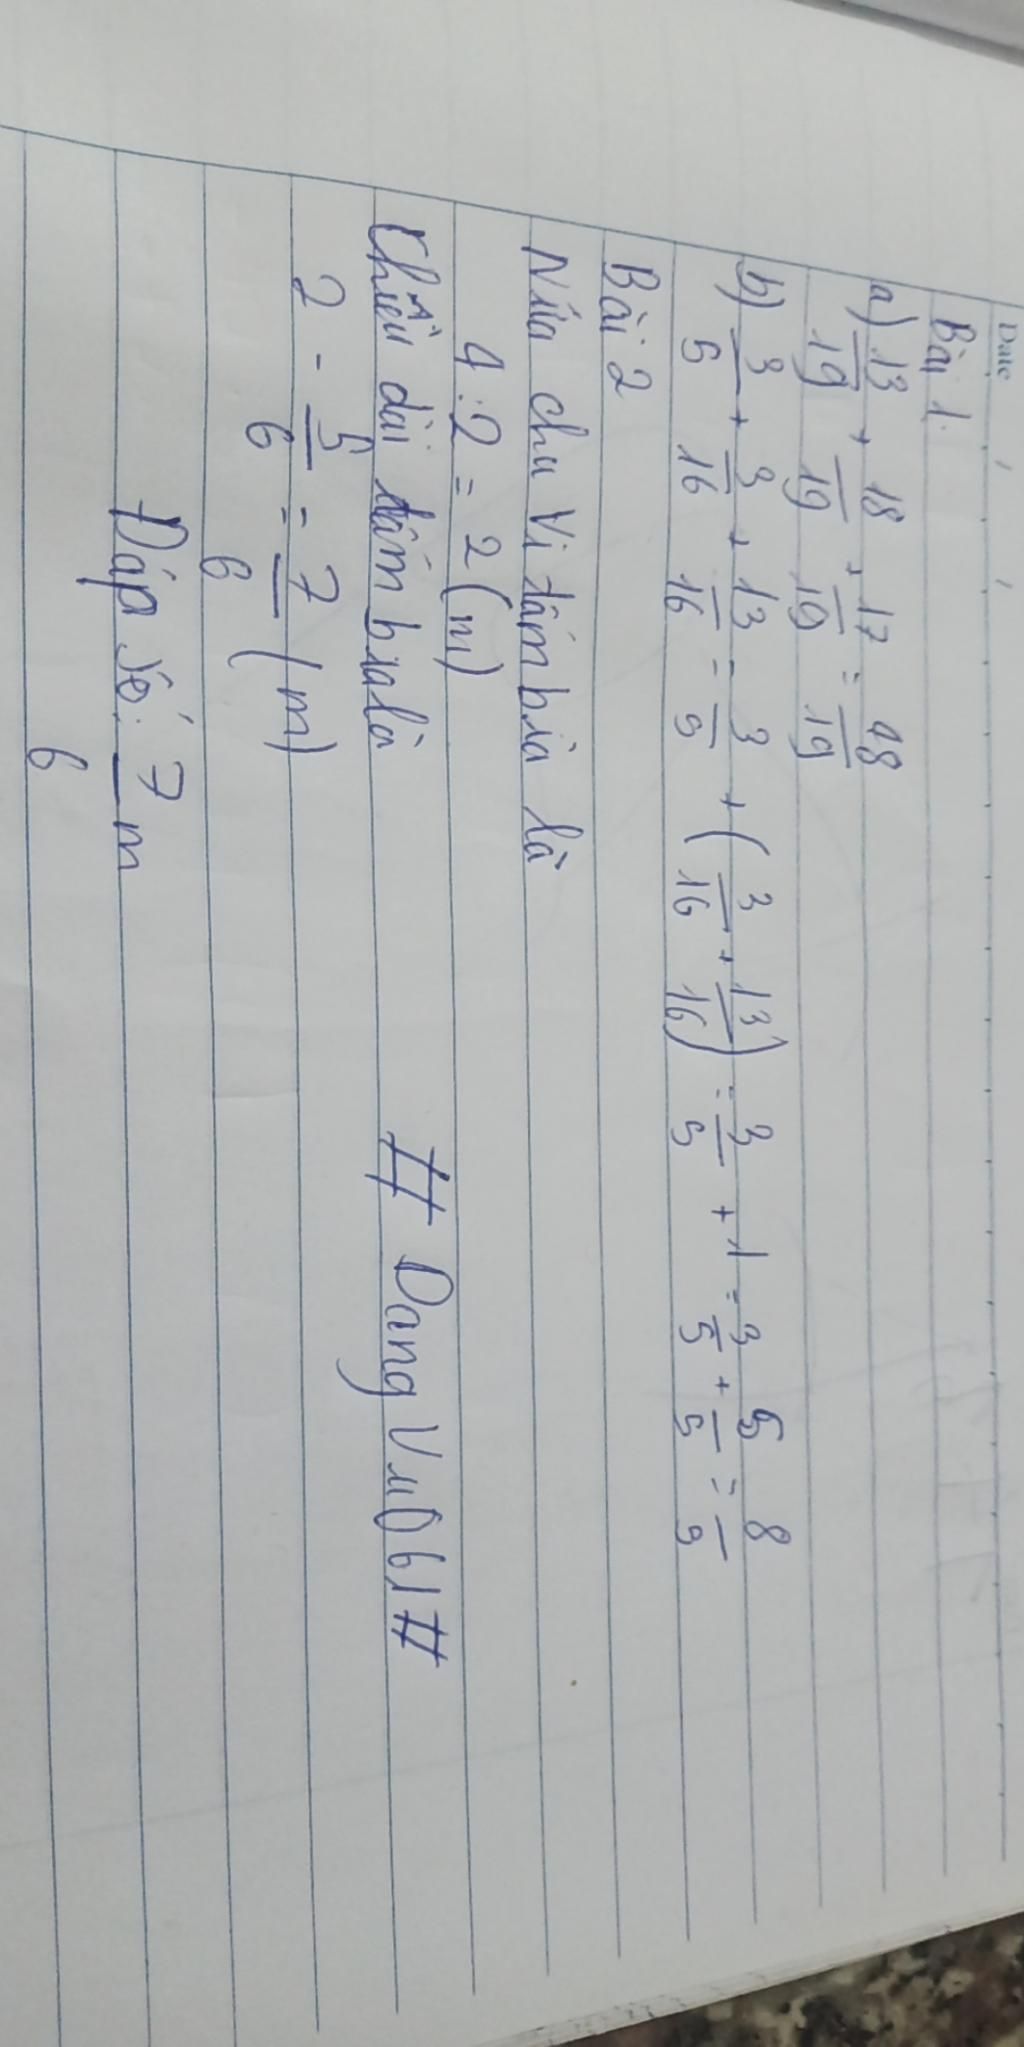 Date
Bài 1.
a) 13/19 + 18/19 + 17/19 = 48/19
b) 3/5 + 3/16 + 13/16 = 3/5 + (3/16 + 13/16) = 3/5 + 1 = 3/5 + 5/5 = 8/5
Bài 2
Nửa chu vi tấm bìa là
4 : 2 = 2 (m)
Chiều dài tấm bìa là
2 - 5/6 = 7/6 (m)
Đáp số: 7/6 m
# Dang Vu 061#